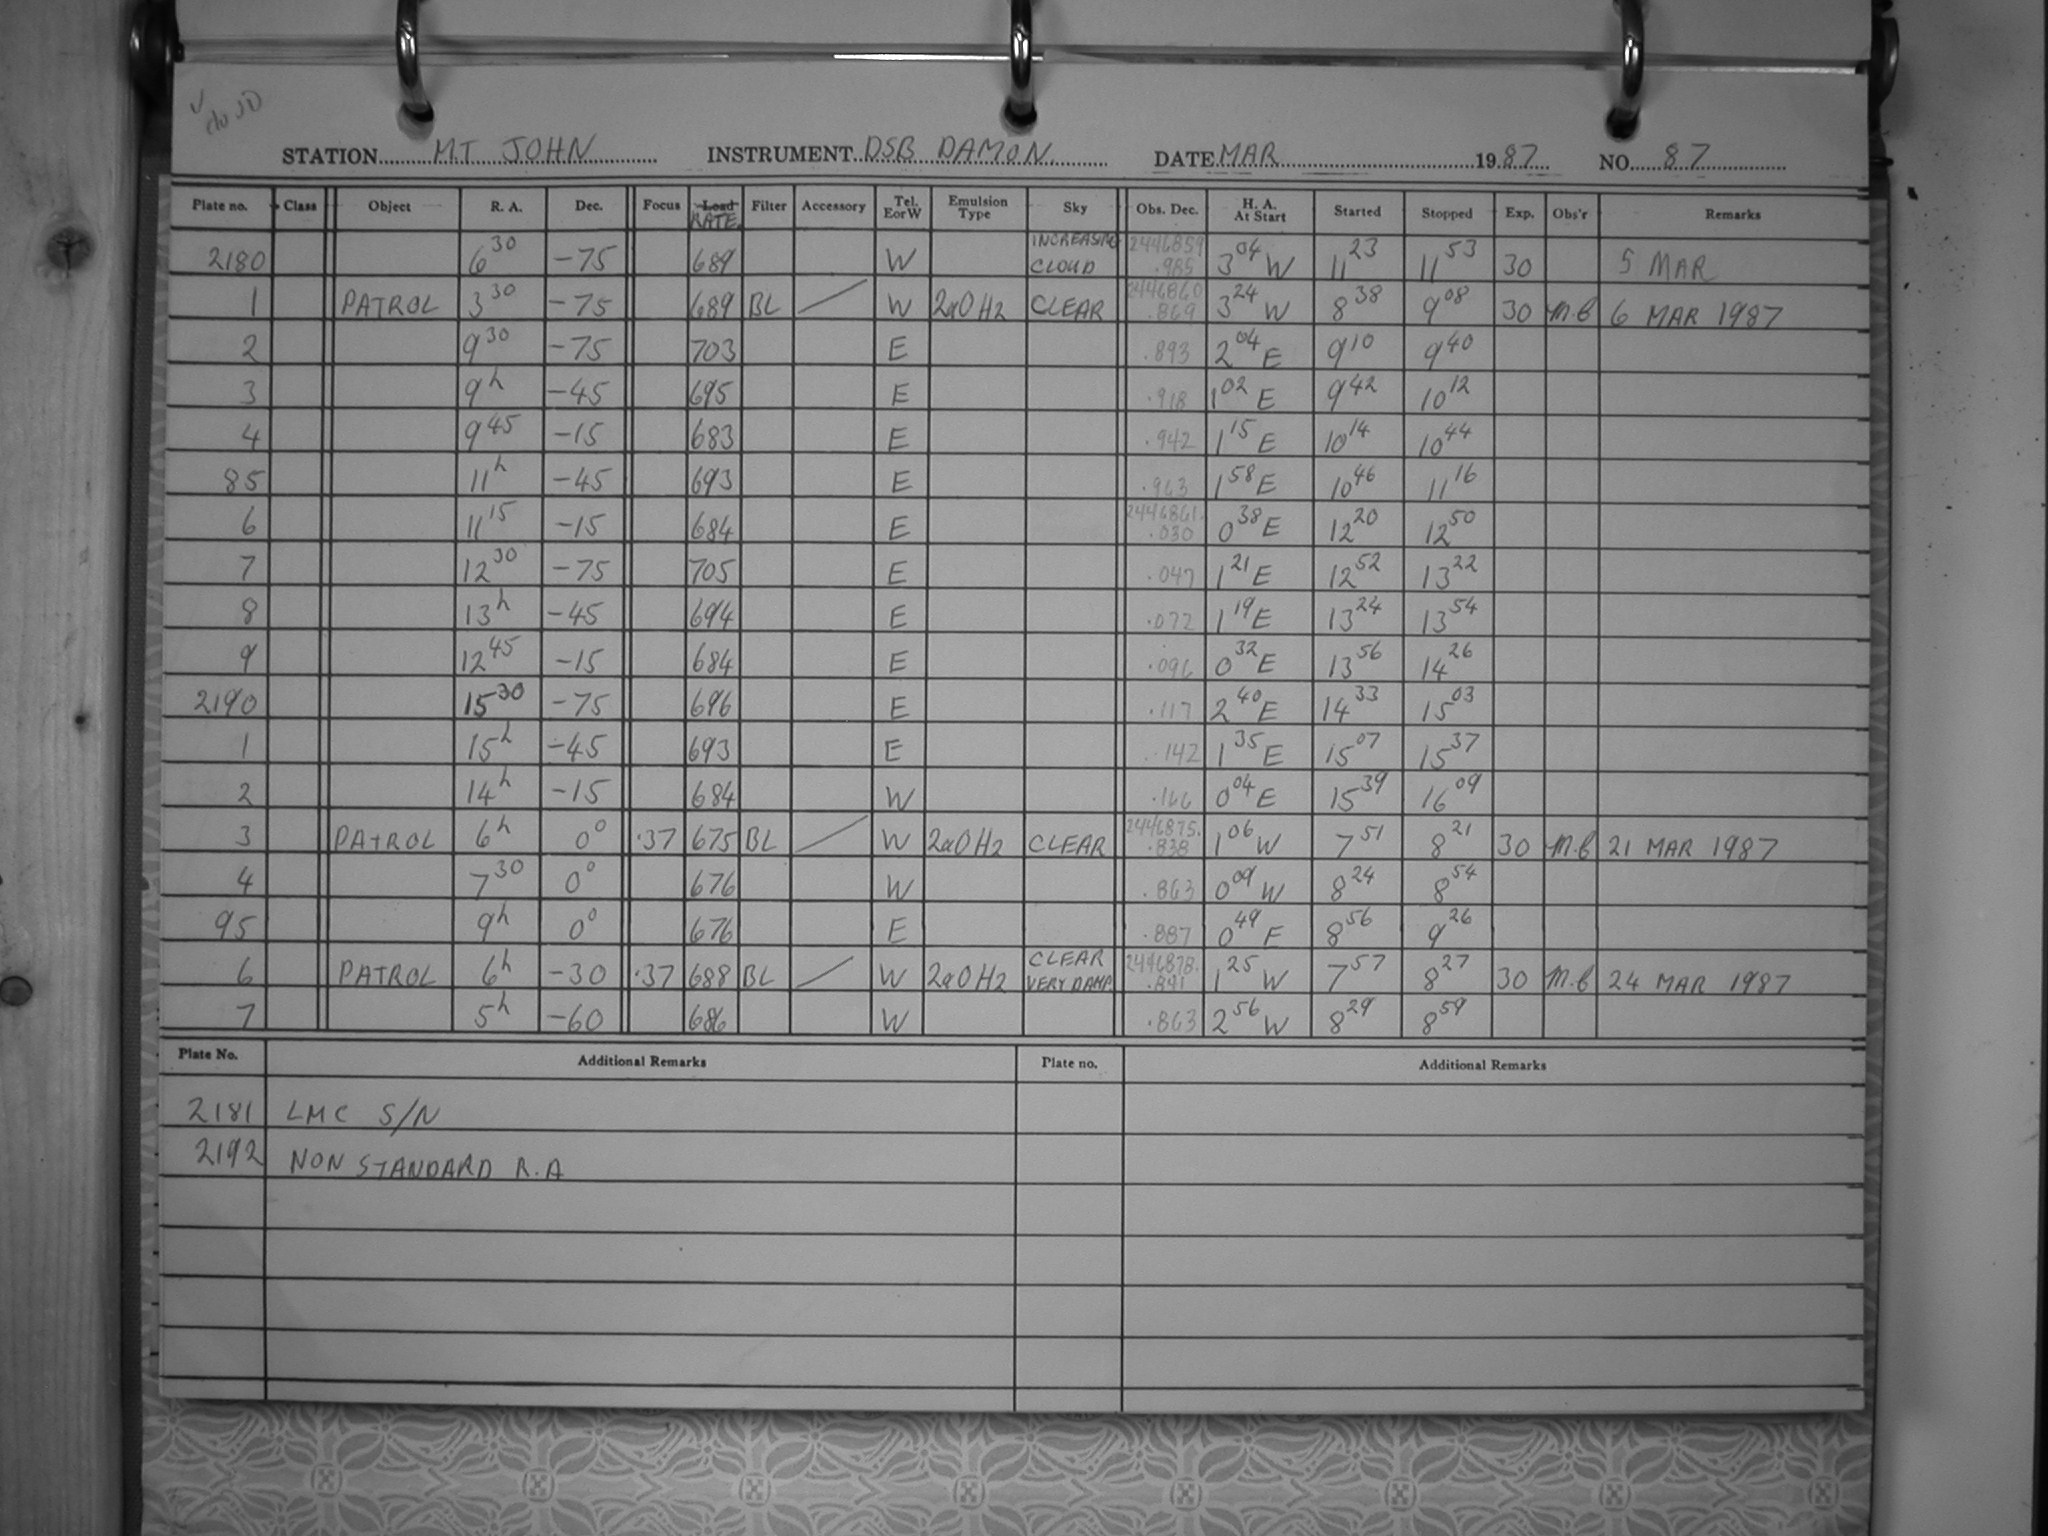 do JD
STATION MT JOHN INSTRUMENT DSB DAMON DATE MAR 1987 NO. 87
Plate no. Class Object R. A. Dec. Focus Load RATE Filter Accessory Tel. E or W Emulsion Type Sky Obs. Dec. H. A. At Start Started Stopped Exp. Obs'r Remarks
2180 6 30 -75 689 W INCREASING CLOUD 2446859 .985 3 04 W 11 23 11 53 30 5 MAR
1 PATROL 3 30 -75 689 BL / W 2aO H2 CLEAR 2446860 .869 3 24 W 8 38 9 08 30 M.B 6 MAR 1987
2 9 30 -75 703 E .893 2 04 E 9 10 9 40
3 9h -45 695 E .918 1 02 E 9 42 10 12
4 9 45 -15 683 E .942 1 15 E 10 14 10 44
85 11h -45 693 E .963 1 58 E 10 46 11 16
6 11 15 -15 684 E 2446861. .030 0 38 E 12 20 12 50
7 12 30 -75 705 E .047 1 21 E 12 52 13 22
8 13h -45 694 E .072 1 19 E 13 24 13 54
9 12 45 -15 684 E .096 0 32 E 13 56 14 26
2190 15 30 -75 696 E .117 2 40 E 14 33 15 03
1 15h -45 693 E .142 1 35 E 15 07 15 37
2 14h -15 684 W .166 0 04 E 15 39 16 09
3 PATROL 6h 0° .37 675 BL / W 2aO H2 CLEAR 2446875. .838 1 06 W 7 51 8 21 30 M.B 21 MAR 1987
4 7 30 0° 676 W .863 0 09 W 8 24 8 54
95 9h 0° 676 E .887 0 49 E 8 56 9 26
6 PATROL 6h -30 .37 688 BL / W 2aO H2 CLEAR VERY DAMP 2446878. .841 1 25 W 7 57 8 27 30 M.B 24 MAR 1987
7 5h -60 686 W .863 2 56 W 8 29 8 59
Plate No. Additional Remarks Plate no. Additional Remarks
2181 LMC S/N
2192 NON STANDARD R.A